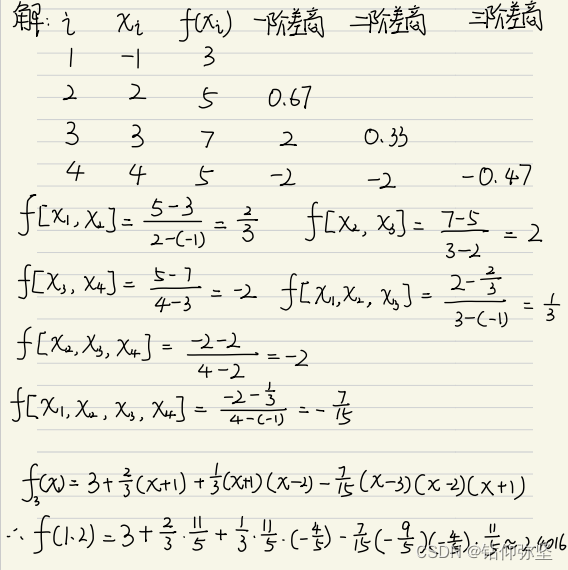 解: i xᵢ f(xᵢ) 一阶差商 二阶差商 三阶差商
1 -1 3
2 2 5 0.67
3 3 7 2 0.33
4 4 5 -2 -2 -0.47
f[x₁,x₂]=(5-3)/(2-(-1))=2/3 f[x₂,x₃]=(7-5)/(3-2)=2
f[x₃,x₄]=(5-7)/(4-3)=-2 f[x₁,x₂,x₃]=(2-2/3)/(3-(-1))=1/3
f[x₂,x₃,x₄]=(-2-2)/(4-2)=-2
f[x₁,x₂,x₃,x₄]=(-2-1/3)/(4-(-1))=-7/15
f₃(x)=3+2/3(x+1)+1/3(x+1)(x-2)-7/15(x-3)(x-2)(x+1)
∴ f(1.2)=3+2/3·11/5+1/3·11/5·(-4/5)-7/15(-9/5)(-4/5)·11/5≈2.4016
CSDN @钻仰弥坚